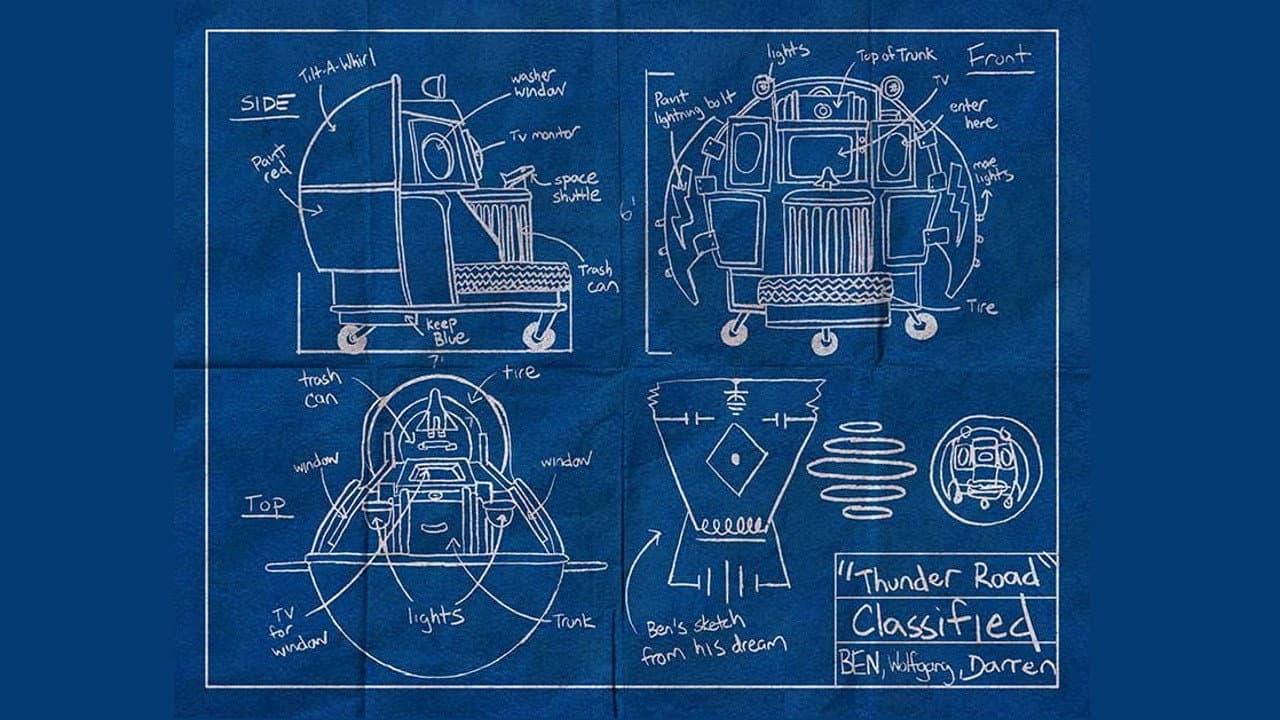 SIDE
Tilt-A-Whirl
washer
window
TV monitor
space
shuttle
Paint
red
Trash
can
keep
Blue
7'
Front
lights
Top of Trunk
TV
enter
here
Paint
lightning bolt
more
lights
6'
Tire
Top
trash
can
tire
window
window
TV
for
window
lights
Trunk
Ben's sketch
from his dream
"Thunder Road"
Classified
BEN, Wolfgang, Darren